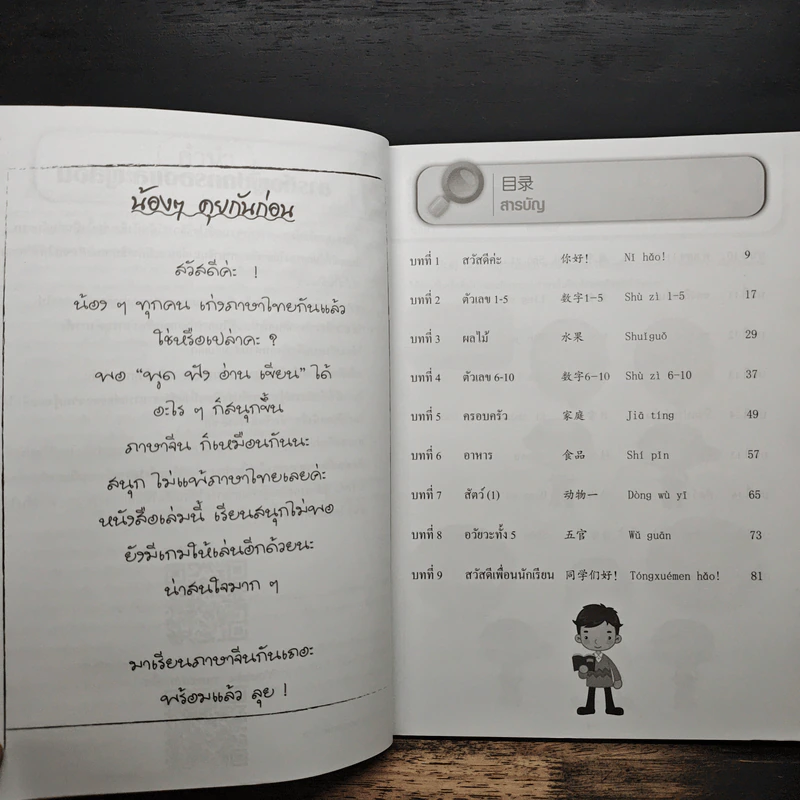 น้องๆ คุยกันก่อน
สวัสดีค่ะ !
น้อง ๆ ทุกคน เก่งภาษาไทยกันแล้ว
ใช่หรือเปล่าคะ ?
พอ “พูด ฟัง อ่าน เขียน” ได้
อะไร ๆ ก็สนุกขึ้น
ภาษาจีน ก็เหมือนกันนะ
สนุก ไม่แพ้ภาษาไทยเลยค่ะ
หนังสือเล่มนี้ เรียนสนุกไม่พอ
ยังมีเกมให้เล่นอีกด้วยนะ
น่าสนใจมาก ๆ
มาเรียนภาษาจีนกันเถอะ
พร้อมแล้ว ลุย !
目录
สารบัญ
บทที่ 1 สวัสดีค่ะ 你好! Nǐ hǎo! 9
บทที่ 2 ตัวเลข 1-5 数字1-5 Shù zì 1-5 17
บทที่ 3 ผลไม้ 水果 Shuǐguǒ 29
บทที่ 4 ตัวเลข 6-10 数字6-10 Shù zì 6-10 37
บทที่ 5 ครอบครัว 家庭 Jiā tíng 49
บทที่ 6 อาหาร 食品 Shí pǐn 57
บทที่ 7 สัตว์ (1) 动物一 Dòng wù yī 65
บทที่ 8 อวัยวะทั้ง 5 五官 Wǔ guān 73
บทที่ 9 สวัสดีเพื่อนนักเรียน 同学们好! Tóngxuémen hǎo! 81